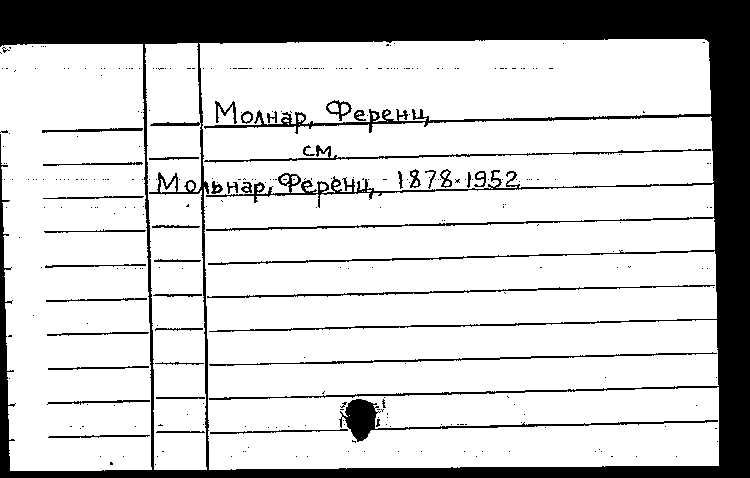 Молнар, Ференц,
см.
Мольнар, Ференц, 1878-1952